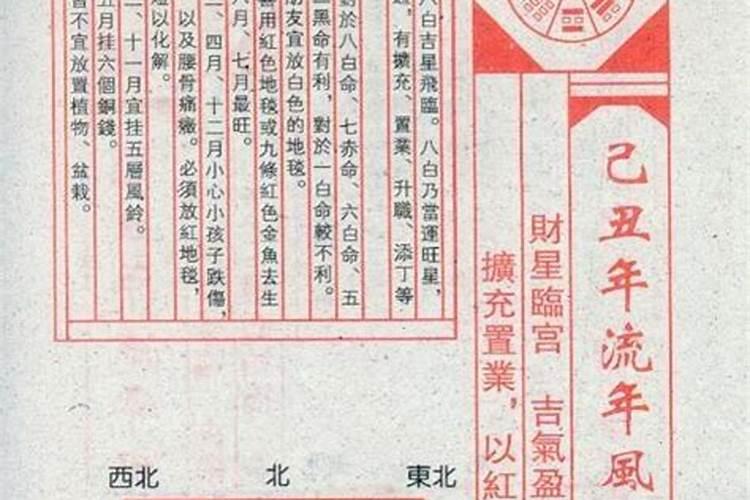 己丑年流年風
財星臨宮 吉氣盈
擴充置業，以紅
八白吉星飛臨。八白乃當運旺星，
，有擴充、置業、升職、添丁等
對於八白命、七赤命、六白命、五
黑命有利，對於一白命較不利。
朋友宜放白色的地毯。
用紅色地毯或九條紅色金魚去生
月、七月最旺。
二、四月、十二月小心小孩子跌傷，
以及腰骨痛癥。必須放紅地毯，
以化解。
、十一月宜挂五層風鈴。
五月挂六個銅錢。
不宜放置植物、盆栽。
西北 北 東北